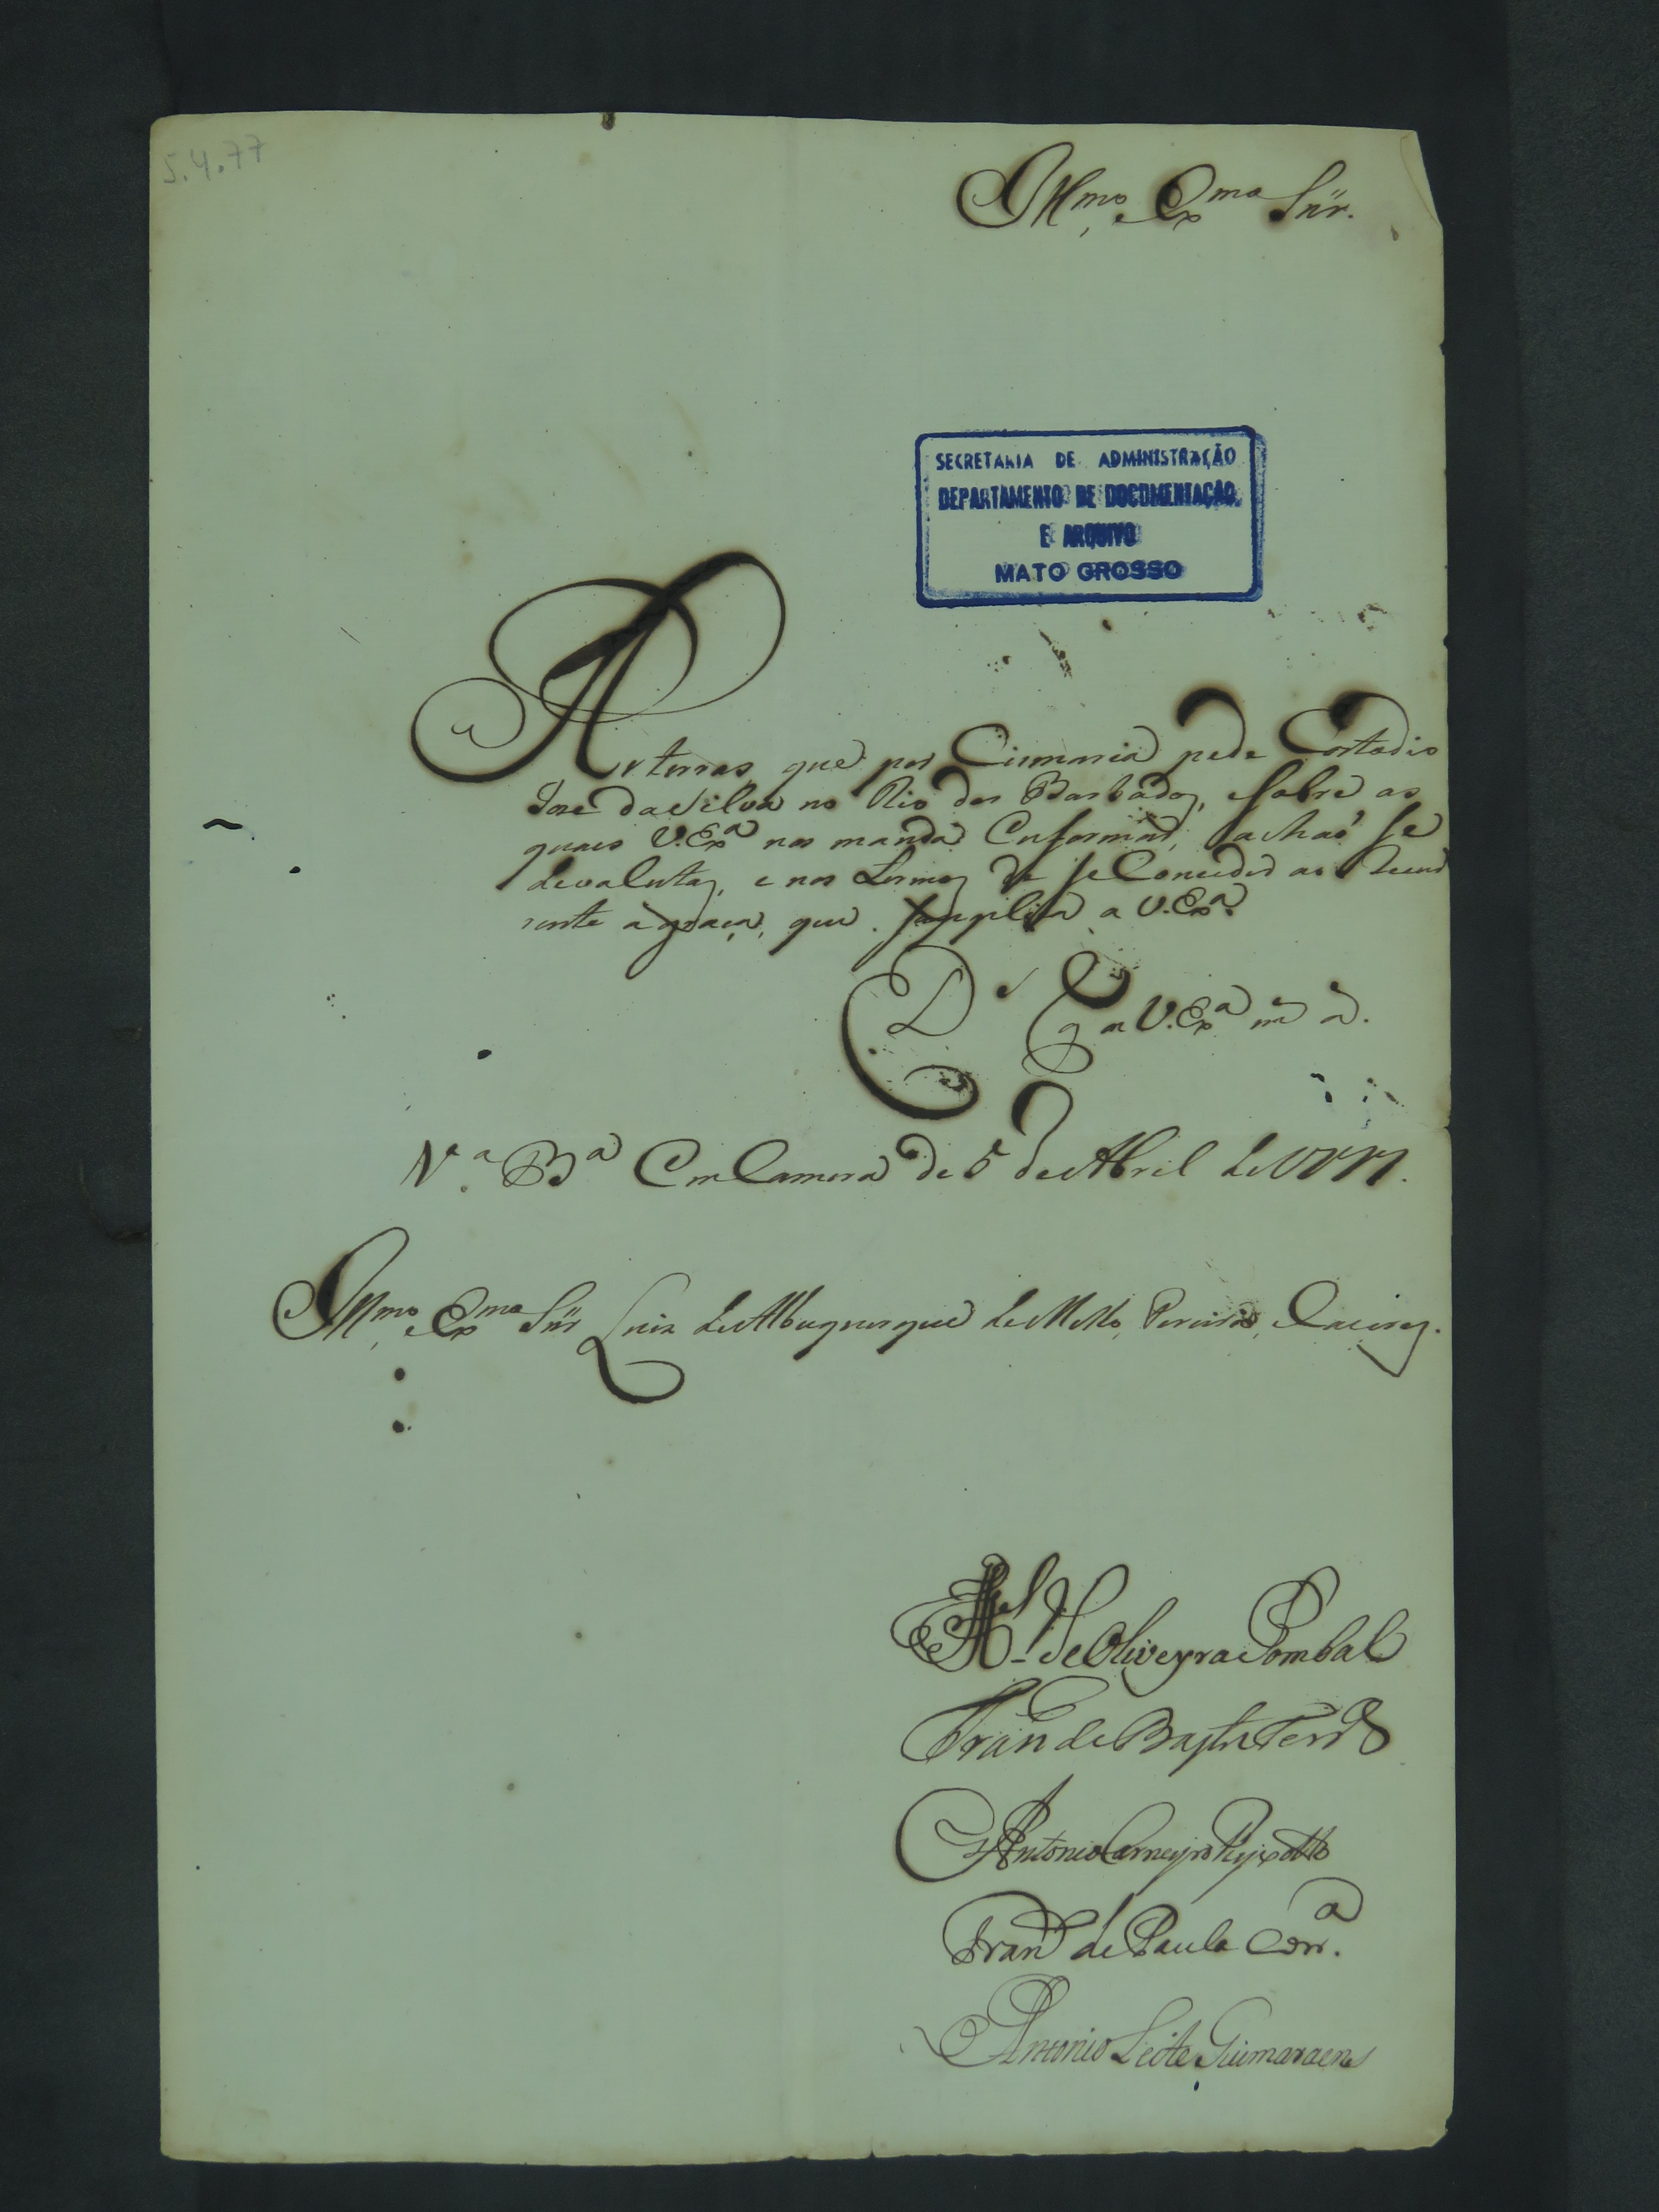 5.4.77
Illmo, e Exmo Snr.
SECRETARIA DE ADMINISTRAÇÃO
DEPARTAMENTO DE DOCUMENTAÇÃO
E ARQUIVO
MATO GROSSO
As terras, que por Cismaria pede Costodio
Joze da Silva no Rio dos Barbados, e sobre as
quaes V. Exa nos manda Enformar, se achaõ se
devalutas, e nos termos de se Conceder ao Recur
rente a graça, que supplica a V. Exa.
Ds Ge a V. Exa ms as.
Va Ba Em Camera de 5 de Abril de 1777.
Illmo, e Exmo Snr Luiz de Albuquerque de Mello, Pereira, e Caceres.
Mel de Oliveyra Pombal
Franco de Bastos Ferra
Antonio Carneyro Peyxotto
Franco de Paula Corra.
Antonio Leite Guimaraens